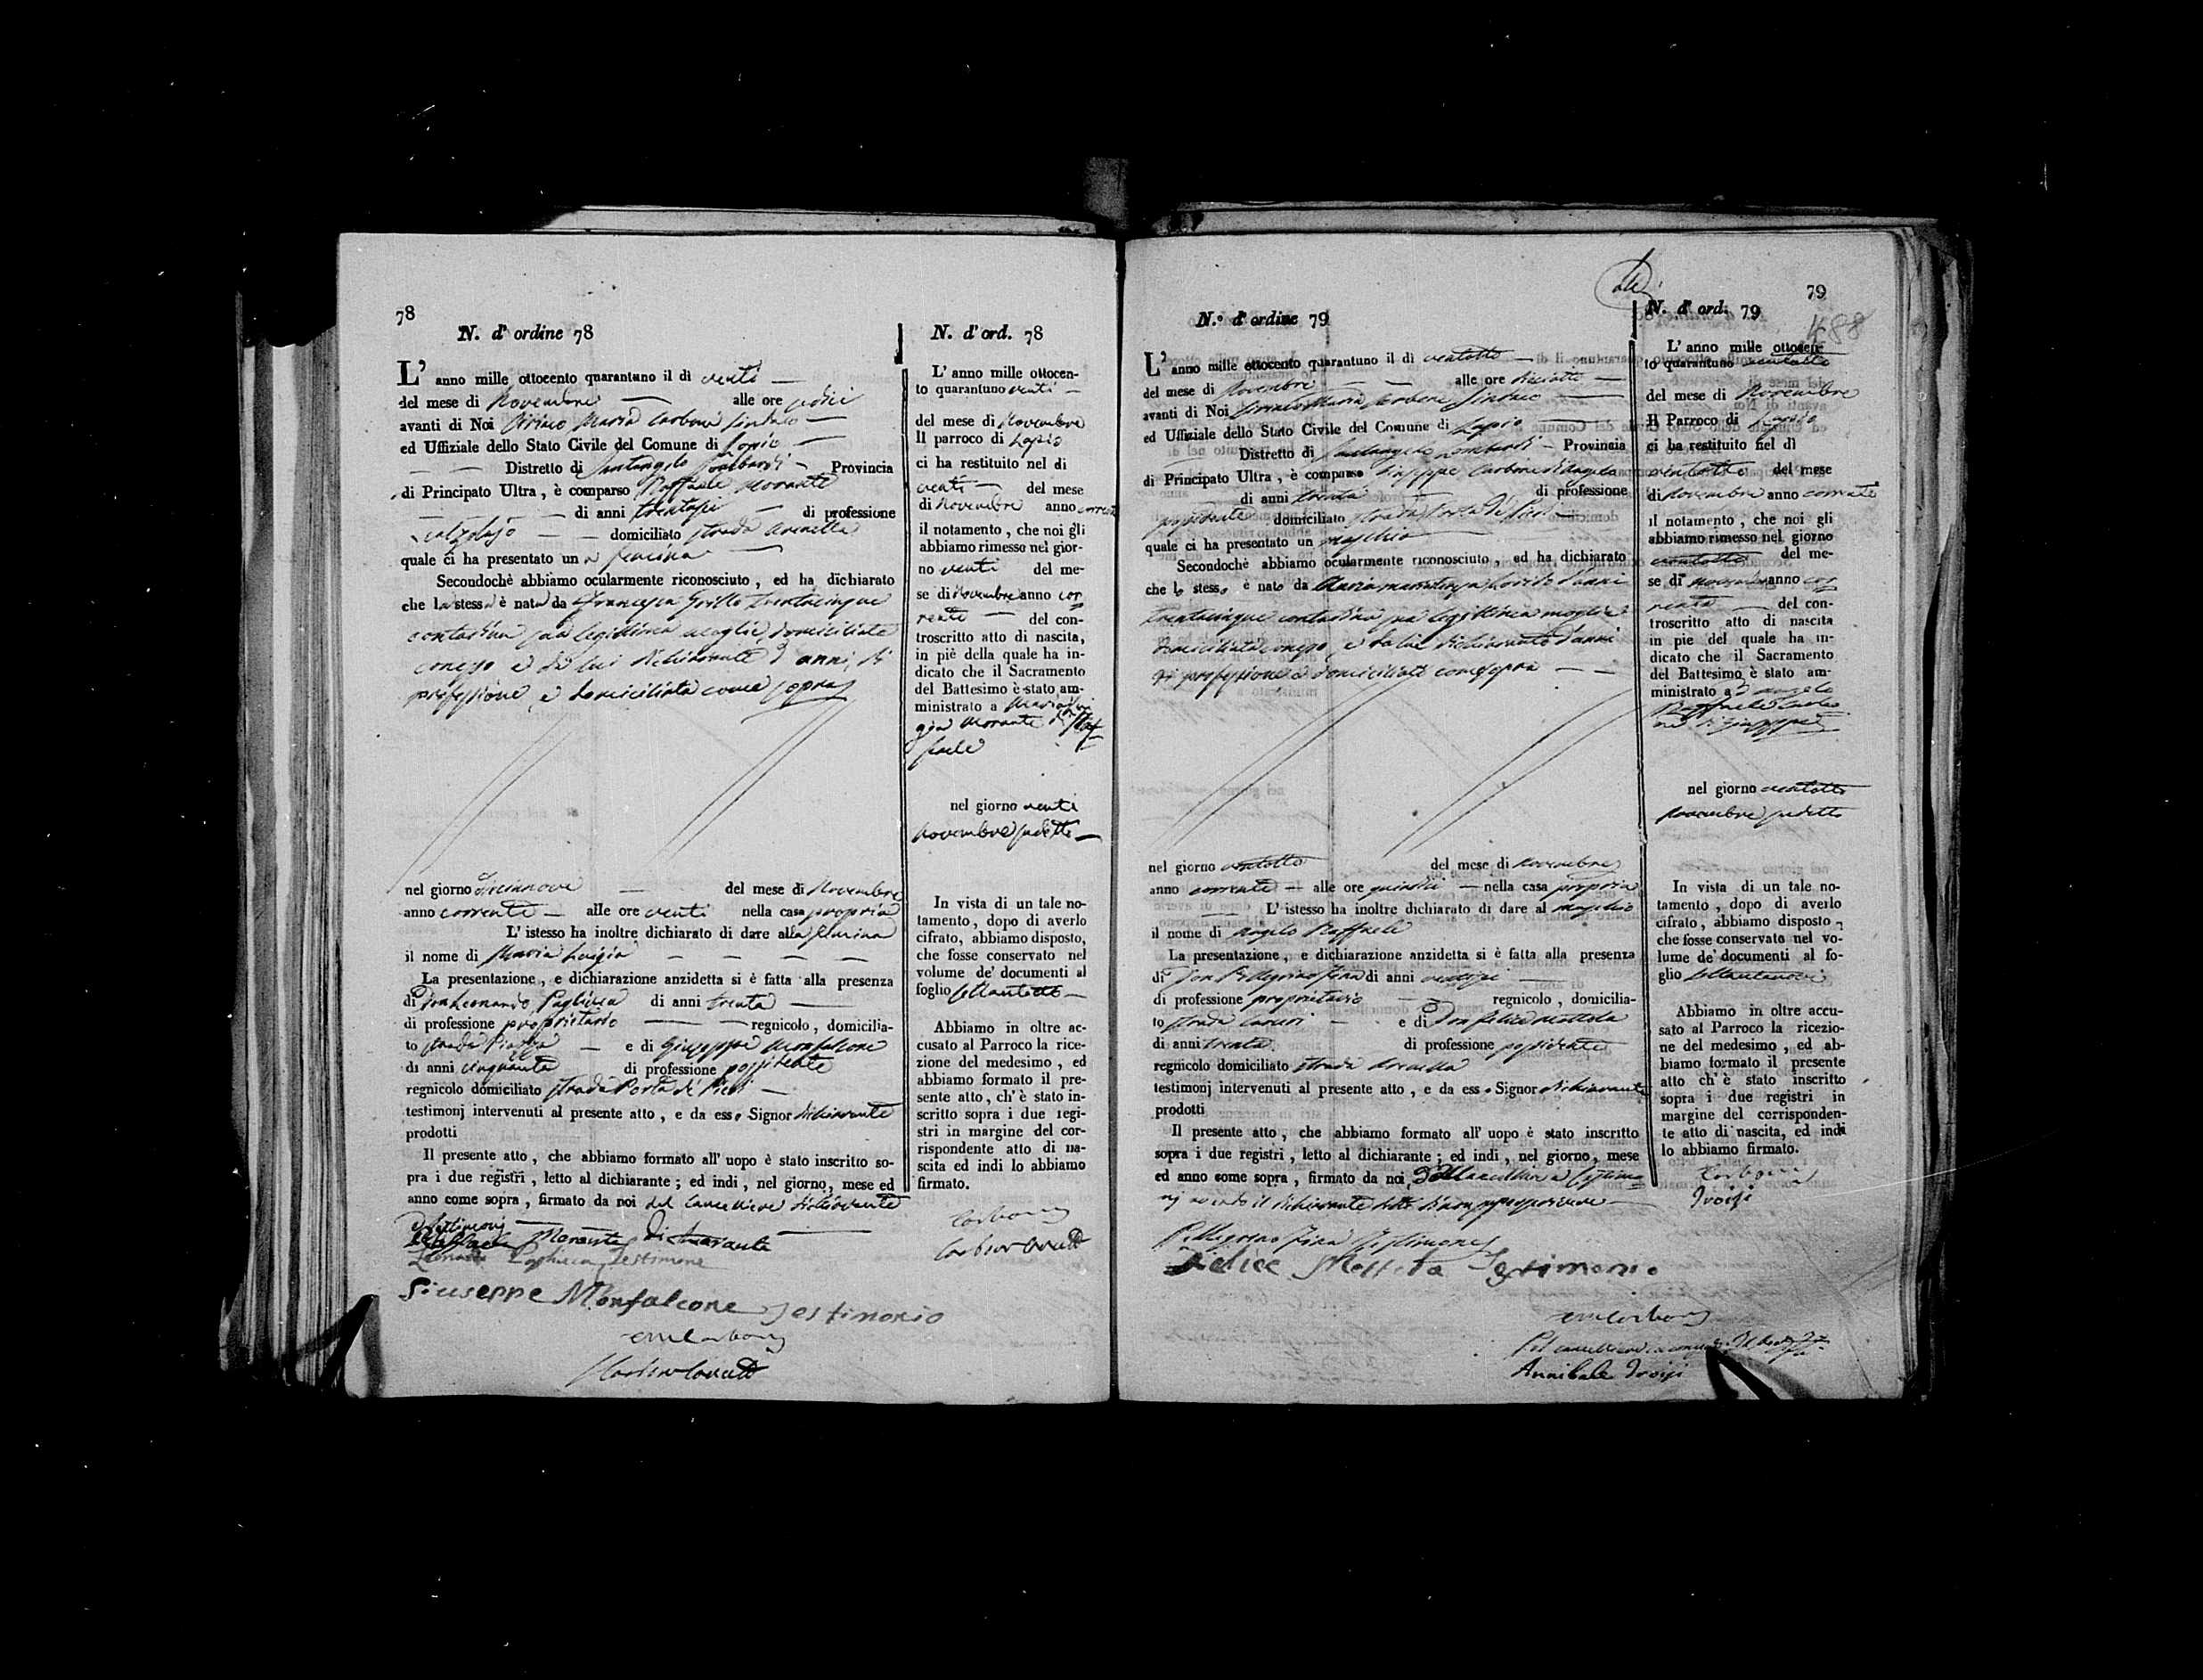 78
N. d'ordine 78
L' anno mille ottocento quarantuno il dì venti
del mese di Novembre alle ore sedici
avanti di Noi Maria Carbone Sindaco
ed Uffiziale dello Stato Civile del Comune di Lapio
Distretto di Santangelo Lombardi Provincia
di Principato Ultra, è comparso Raffaele Morante
di anni trentasei di professione
calzolajo domiciliato strada Arenella
quale ci ha presentato una femina
Secondochè abbiamo ocularmente riconosciuto, ed ha dichiarato
che la stessa è nata da Francesca Grillo trentacinque
contadina sua legittima moglie domiciliata
conesso e da lui dichiarante d'anni, di
professione, e domiciliato come sopra
nel giorno diciannove del mese di Novembre
anno corrente alle ore venti nella casa propria
L' istesso ha inoltre dichiarato di dare alla femina
il nome di Maria Luigia
La presentazione, e dichiarazione anzidetta si è fatta alla presenza
di Don Leonardo di anni trenta
di professione proprietario regnicolo, domicilia-
to strada Piazza e di Giuseppe Monfalcone
di anni cinquanta di professione possidente
regnicolo domiciliato strada Porta di Pieri
testimonj intervenuti al presente atto, e da esso Signor dichiarante
prodotti
Il presente atto, che abbiamo formato all' uopo è stato inscritto so-
pra i due registri, letto al dichiarante; ed indi, nel giorno, mese ed
anno come sopra, firmato da noi del Cancelliere dichiarante
e testimonj
Raffaele Morante dichiarante
Testimone
Giuseppe Monfalcone Testimonio
N. d'ord. 78
L' anno mille ottocen-
to quarantuno venti
del mese di Novembre
Il parroco di Lapio
ci ha restituito nel di
venti del mese
di Novembre anno corrente
il notamento, che noi gli
abbiamo rimesso nel gior-
no venti del me-
se di Novembre anno cor-
rente del con-
troscritto atto di nascita,
in piè della quale ha in-
dicato che il Sacramento
del Battesimo è stato am-
ministrato a Maria Lui
gia Morante di Raf-
faele
nel giorno venti
Novembre sudetto
In vista di un tale no-
tamento, dopo di averlo
cifrato, abbiamo disposto,
che fosse conservato nel
volume de' documenti al
foglio settantotto
Abbiamo in oltre ac-
cusato al Parroco la rice-
zione del medesimo, ed
abbiamo formato il pre-
sente atto, ch' è stato in-
scritto sopra i due regi-
stri in margine del cor-
rispondente atto di na-
scita ed indi lo abbiamo
firmato.
Carbone
79
488
N.º d'ordine 79
L' anno mille ottocento quarantuno il dì ventotto
del mese di Novembre alle ore diciotto
avanti di Noi Maria Carbone Sindaco
ed Uffiziale dello Stato Civile del Comune di Lapio
Distretto di Santangelo Lombardi Provincia
di Principato Ultra, è comparso Giuseppe Carbone di Angelo
di anni trenta di professione
possidente domiciliato strada Porta di Pieri
quale ci ha presentato un maschio
Secondochè abbiamo ocularmente riconosciuto, ed ha dichiarato
che lo stesso è nato da d'anni
trentacinque contadina sua legittima moglie
domiciliata conesso, e da lui dichiarante d'anni
di professione e domiciliato comesopra
nel giorno ventotto del mese di Novembre
anno corrente alle ore quindici nella casa propria
L' istesso ha inoltre dichiarato di dare al maschio
il nome di Angelo Raffaele
La presentazione, e dichiarazione anzidetta si è fatta alla presenza
di Don Pellegrino Fina di anni
di professione proprietario regnicolo, domicilia-
to strada e di Don Felice Mottola
di anni trenta di professione possidente
regnicolo domiciliato strada Arenella
testimonj intervenuti al presente atto, e da esso Signor dichiarante
prodotti
Il presente atto, che abbiamo formato all' uopo è stato inscritto
sopra i due registri, letto al dichiarante; ed indi, nel giorno, mese
ed anno come sopra, firmato da noi, dal Cancelliere e testimo-
nj avendo il dichiarante detto di non sapere scrivere
Pellegrino Fina Testimone
Felice Mottola Testimonio
Annibale Troisi
N. d'ord. 79
L' anno mille ottocen-
to quarantuno ventotto
del mese di Novembre
Il Parroco di Lapio
ci ha restituito nel dì
ventotto del mese
di Novembre anno corrente
il notamento, che noi gli
abbiamo rimesso nel giorno
ventotto del me-
se di Novembre anno cor-
rente del con-
troscritto atto di nascita
in pie del quale ha in-
dicato che il Sacramento
del Battesimo è stato am-
ministrato a Angelo
Raffaele Carbo
ne di Giuseppe
nel giorno ventotto
Novembre sudetto
In vista di un tale no-
tamento, dopo di averlo
cifrato, abbiamo disposto,
che fosse conservato nel vo-
lume de' documenti al fo-
glio settantanove
Abbiamo in oltre accu-
sato al Parroco la ricezio-
ne del medesimo, ed ab-
biamo formato il presente
atto ch' è stato inscritto
sopra i due registri in
margine del corrisponden-
te atto di nascita, ed indi
lo abbiamo firmato.
Carbone
Troisi